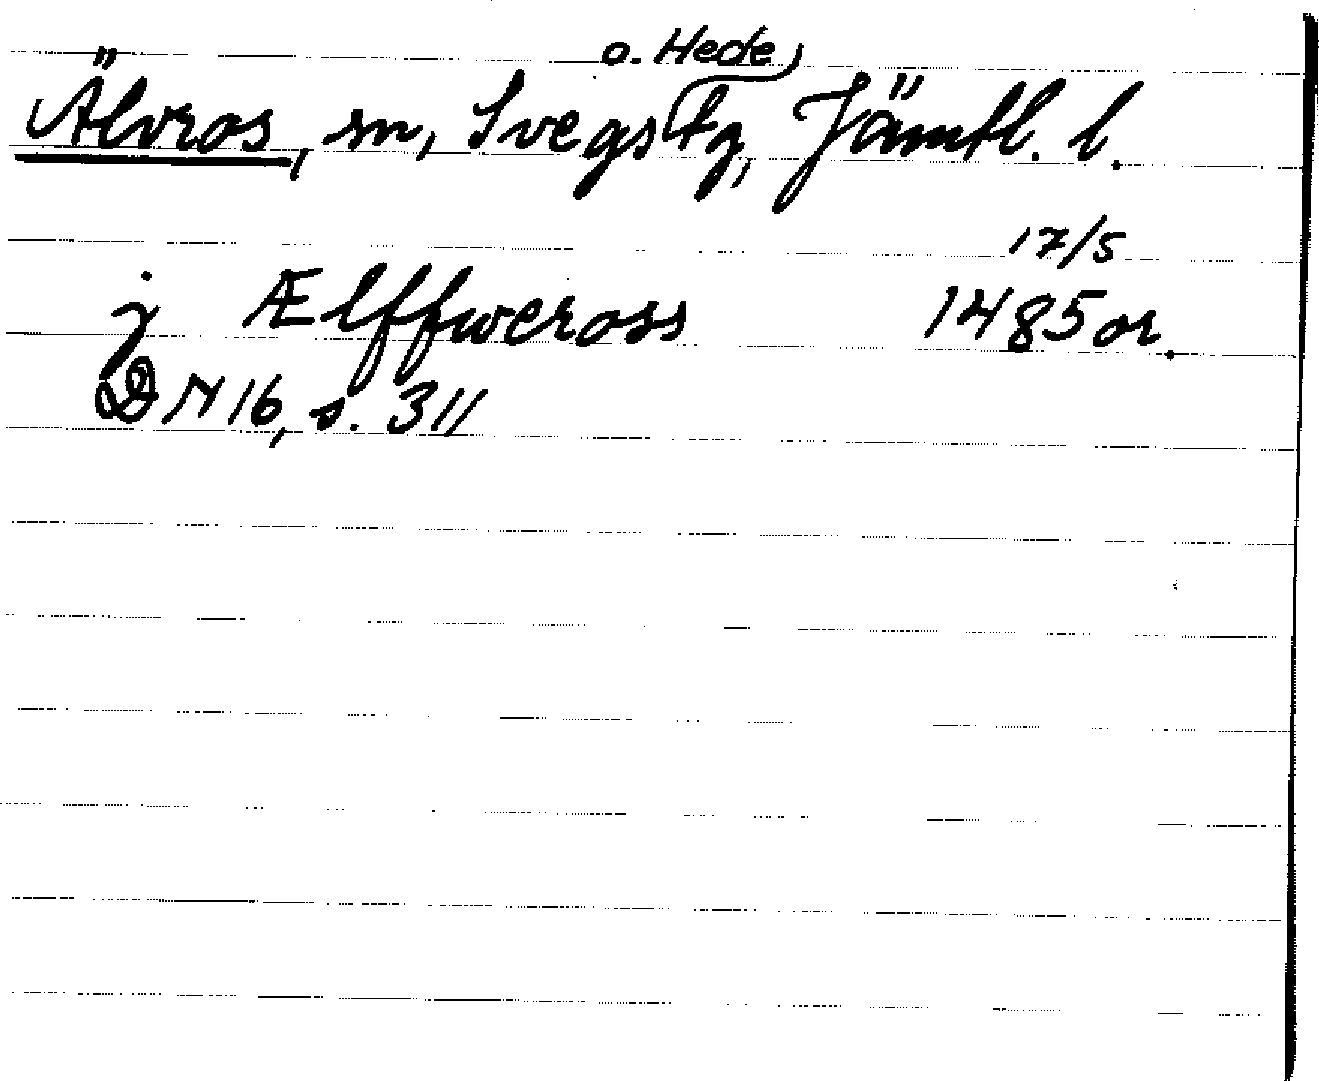 o. Hede
Älvros, sn, Svegs tg, Jämtl. l.
17/5
j Ælffweross 1485 or.
DN 16, s. 311